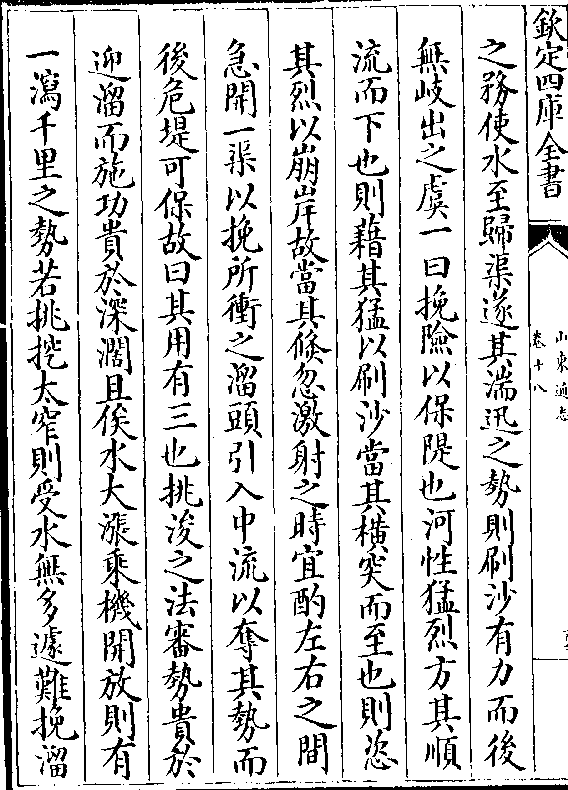 欽定四庫全書
山東通志
卷十八
之務使水至歸渠遂其湍迅之勢則刷沙有力而後
無岐出之虞一曰挽險以保隄也河性猛烈方其順
流而下也則藉其猛以刷沙當其橫突而至也則恣
其烈以崩岸故當其倐忽激射之時宜酌左右之間
急開一渠以挽所衝之溜頭引入中流以奪其勢而
後危堤可保故曰其用有三也挑浚之法審勢貴於
迎溜而施功貴於深濶且俟水大漲乗機開放則有
一瀉千里之勢若挑挖太窄則受水無多遽難挽溜